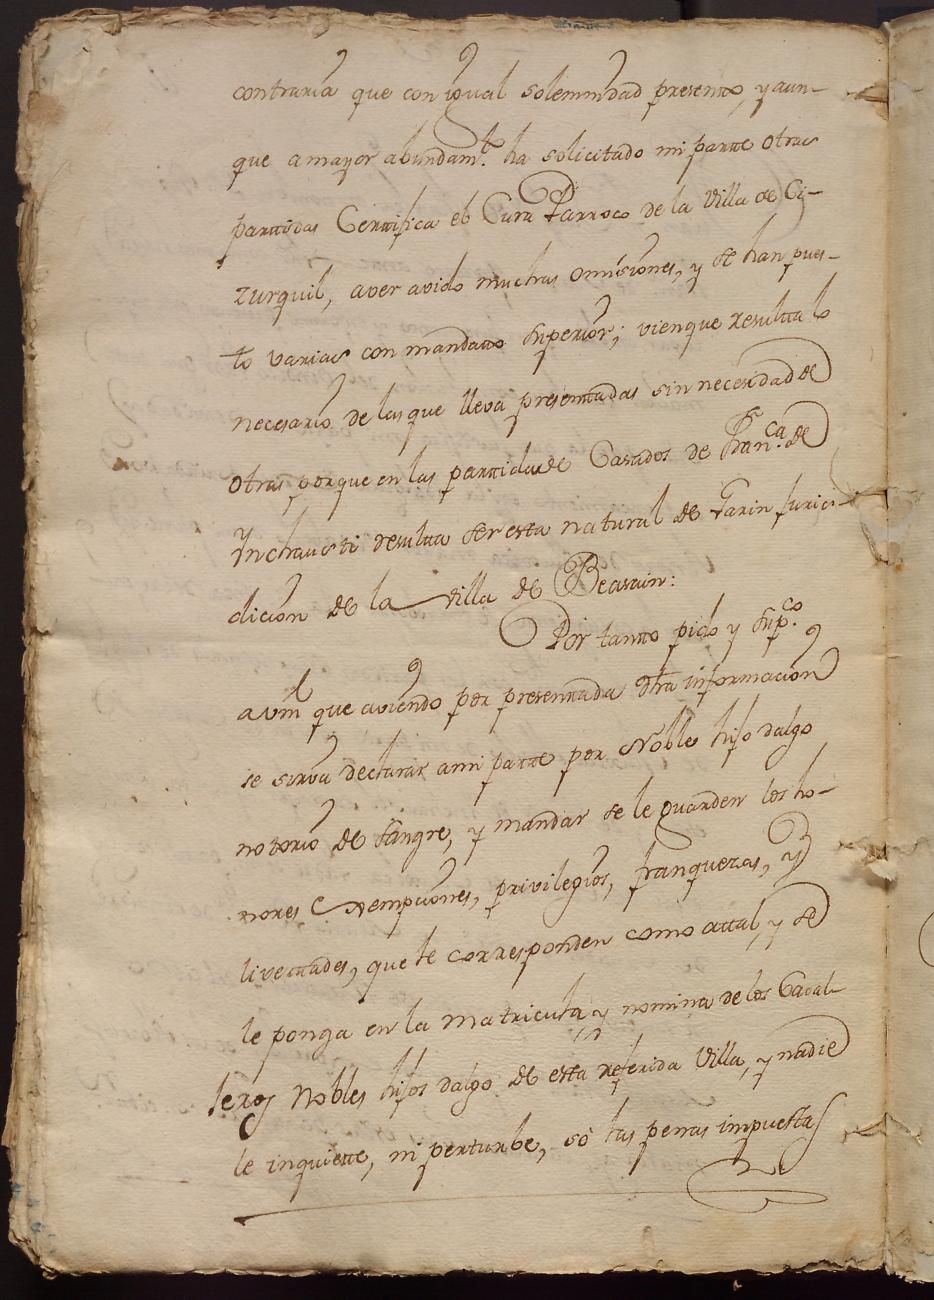 contraria que con igual solemnidad presento, y aun-
que a mayor abundam.to ha solicitado mi parte otras
partidas Certifica el Cura Parroco de la Villa de Ci-
zurquil, aver avido muchas omisiones, y se han pues-
to varias con mandato Superior; vien que resulta lo
necesario de las que lleva presentadas sin necesidad de
otras porque en las partidas de Casados de Fran.ca de
Ynchausti resulta ser esta natural de Garin Juris-
dicion de la Villa de Beasain:
Por tanto pido y sup.co
a vm que aviendo por presentada dha informacion
se sirva declarar a mi parte por Noble hijo dalgo
notorio de sangre, y mandar se le guarden los ho-
nores exempciones, privilegios, franquezas, y
livertades, que le corresponden como a tal, y se
le ponga en la matricula y nomina de los Caval-
leros Nobles hijos dalgo de esta referida Villa, y nadie
le inquiete, ni perturbe, so las penas impuestas